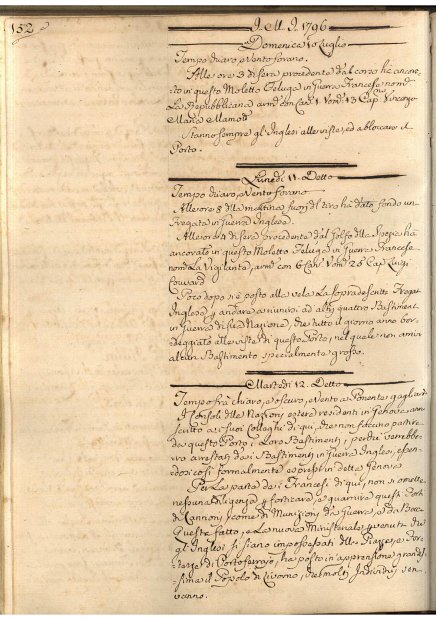 152
J. M. J. 1796
Domenica 10 Luglio
Tempo chiaro, e Vento forano.
Alle ore 3 di sera procedente dal corso ha ancora-
to in questo Moletto Feluga in Guerra Francese nom.ta
La Republicana arm. con Can. 1 Vom. 13 Cap.
Maria Mamott
Stanno sempre gl'Inglesi alle viste, ed a bloccare il
Porto.
Lunedì 11. Detto
Tempo chiaro, e Vento forano
Alle ore 8 della mattina fuori del tiro ha dato fondo un
Fregata in Guerra Inglese.
Alle ore 4 di sera procedente dal Golfo della Spezie ha
ancorato in questo Moletto Feluga in Guerra Francese
nom. La Vigilante, arm. con 6 Can. Vom. 25 Cap. Luigi
Couvard
Poco dopo si è posto alla vela la sopradescritta Fregat
Inglese, e andare a unirsi ad altri quattro Bastiment
in Guerra di sua Nazione, che tutto il giorno anno bor-
deggiato alle viste di questo Porto, nel quale non
alcun Bastimento specialmente grosso.
Martedì 12. Detto
Tempo frà chiaro, e oscuro, e Vento a Ponente gagliard
I Consoli delle Nazioni estere residenti in Genova ann
scritto a i suoi Colleghi di qui, che non faccino partire
da questo Porto i Loro Bastimenti, perché verrebbe-
ro arrestati da i Bastimenti in Guerra Inglesi, essen-
dosi così formalmente espressi in dette
Per la parte de i Francesi di qui, non si omette
nessuna diligenza p fortificare, e guarnire questi Porti
di Cannoni, come di Munizioni da Guerra, e da Bocca
Questo fatto, e la nuova Ministeriale pervenuta che
gl'Inglesi si siano impossessati della Piazza, e For-
tezze di Portoferraio, ha posto in apprensione grandis-
sima il Popolo di Livorno, e molti Individui sen
vanno.